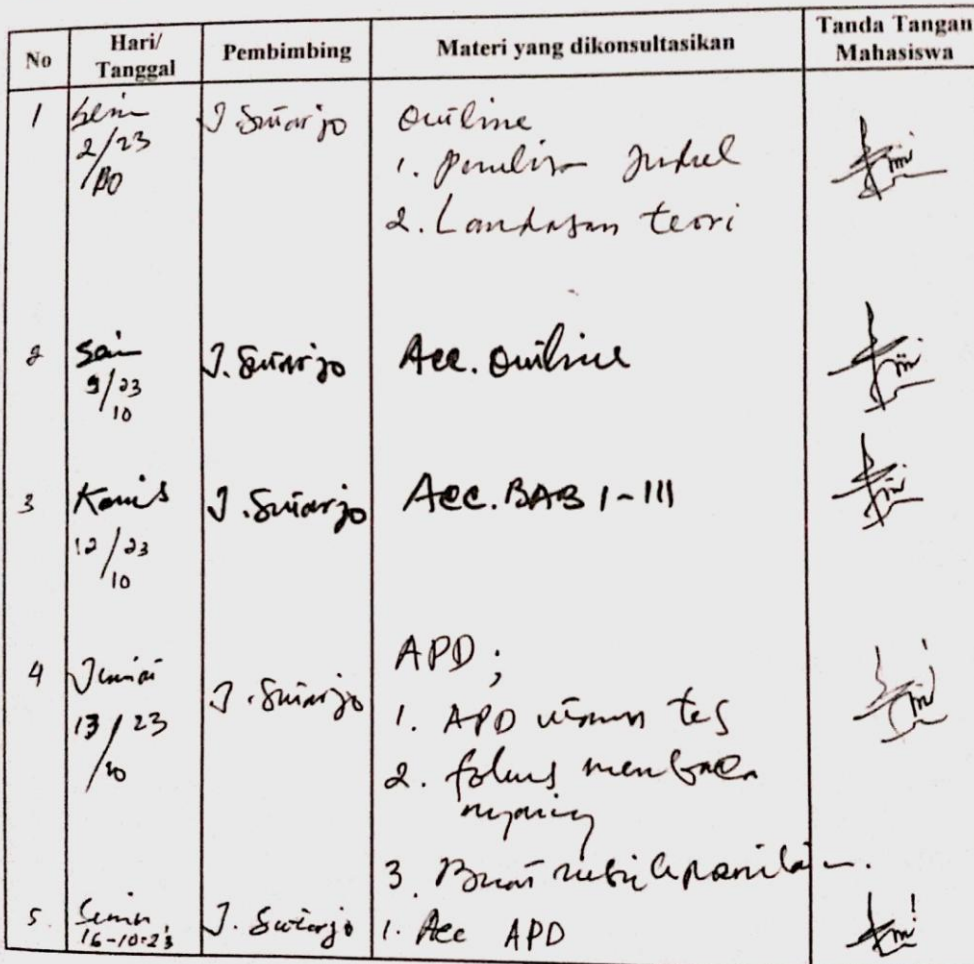 No Hari/ Tanggal Pembimbing Materi yang dikonsultasikan Tanda Tangan Mahasiswa
1 Senin 2/23 /10 J. Sutarjo Outline
1. Penulisan Judul
2. Landasan teori
2 Senin 9/23 /10 J. Sutarjo Acc. Outline
3 Kamis 12/23 /10 J. Sutarjo Acc. BAB I-III
4 Jumat 13/23 /10 J. Sutarjo APD;
1. APD tes
2. fokus membaca nyaring
3. Buat rubrik penilaian.
5. Senin 16-10-23 J. Sutarjo 1. Acc APD